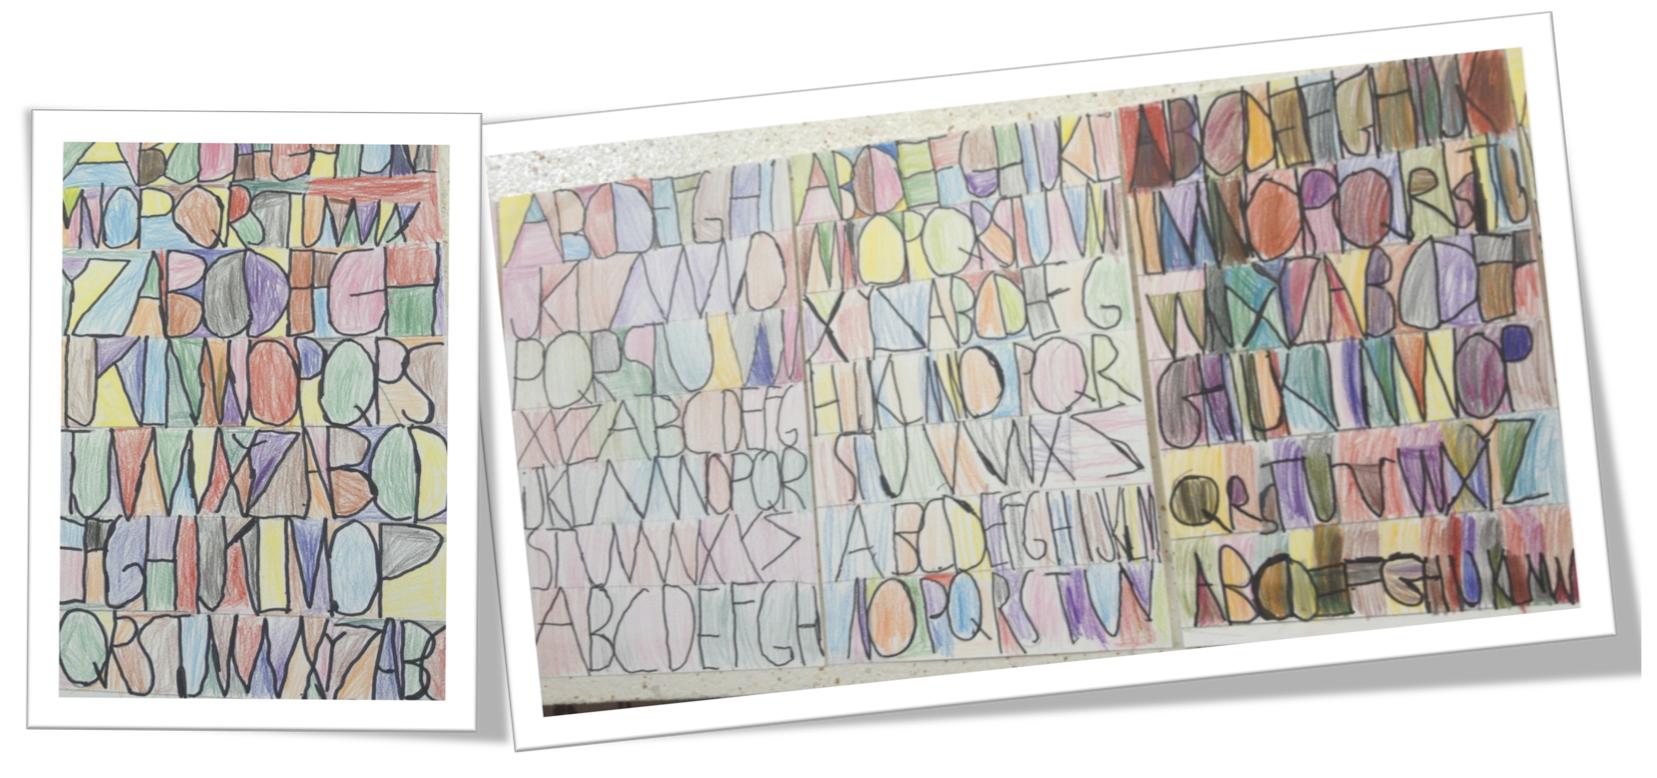 ABCDEFGHI
NOPQRSTUVWX
YZABCDEFGH
JKLMNOPQR
TUVWXYZABCD
EFGHIJKLMNOP
QRSTUVWXYZAB
ABCDEFGHI
JKLMNO
PQRSTUVW
XYZABCDEFG
IJKLMNOPQR
STUVWXYZ
ABCDEFGH
ABCDEFGHIJKL
MNOPQRSTUVW
XYZABCDEFG
HIJKLMNOPQR
STUVWXYZ
ABCDEFGHIJKLM
NOPQRSTUV
ABCDEFGHIJK
LMNOPQRSTU
VWXYZABCDEF
GHIJKLMNOP
QRSTUVWXYZ
ABCDEFGHIJKLMN